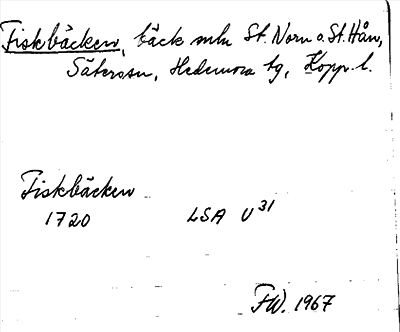 Fiskbäcken, bäck mln St. Norn o. St. Hån,
Säterssn, Hedemora tg, Kopp. l.
Fiskbäcken
1720 LSA U 31
FW. 1967